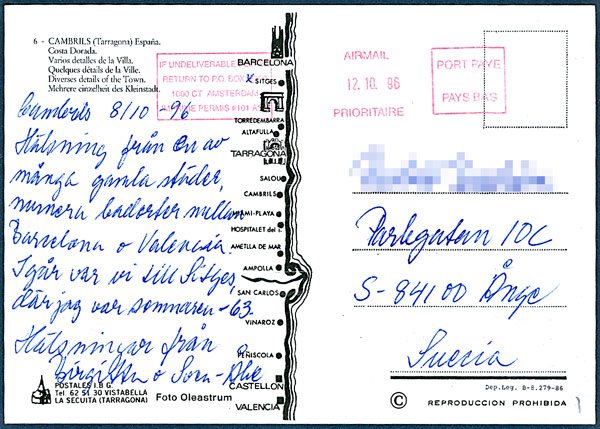 6 - CAMBRILS (Tarragona) España.
Costa Dorada.
Varios detalles de la Villa.
Quelques détails de la Ville.
Diverses details of the Town.
Mehrere einzelheit des Kleinstadt.
IF UNDELIVERABLE
RETURN TO P.O. BOX
1000 CT AMSTERDAM
#101 A
AIRMAIL
12.10. 96
PRIORITAIRE
PORT PAYE
PAYS BAS
Cambrils 8/10 -96
Hälsning från en av
många gamla städer,
numera badorter mellan
Barcelona o Valencia.
Igår var vi till Sitges,
där jag var sommaren -63.
Hälsningar från
Birgitta o Sven-Åke
BARCELONA
SITGES
TORREDEMBARRA
ALTAFULLA
TARRAGONA
SALOU
CAMBRILS
MIAMI-PLAYA
HOSPITALET del I.
AMETLLA DE MAR
AMPOLLA
SAN CARLOS
VINAROZ
PEÑISCOLA
CASTELLON
VALENCIA
Parkgatan 10C
S-841 00 Ånge
Suecia
POSTALES I.B.G.
Tel. 62 51 30 VISTABELLA
LA SECUITA (TARRAGONA)
Foto Oleastrum
Dep. Leg. B-8.279-86
© REPRODUCCION PROHIBIDA